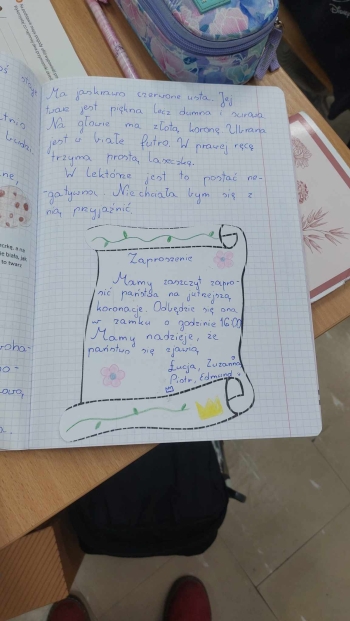 Ma jaskrawo czerwone usta. Jej
twarz jest piękna lecz dumna i surowa
Na głowie ma złotą koronę Ubrana
jest w białe futro. W prawej ręce
trzyma prostą laseczkę.
W Lektórze jest to postać ne-
gatywna. Nie chciała bym się z
nią przyjaźnić
Zaproszenie
Mamy zaszczyt zapro-
sić państwa na jutrzejszą
koronację. Odbędzie się ona
w zamku o godzinie 16:00
Mamy nadzieję, że
państwo się zjawią
Łucja, Zuzanna
Piotr, Edmund.